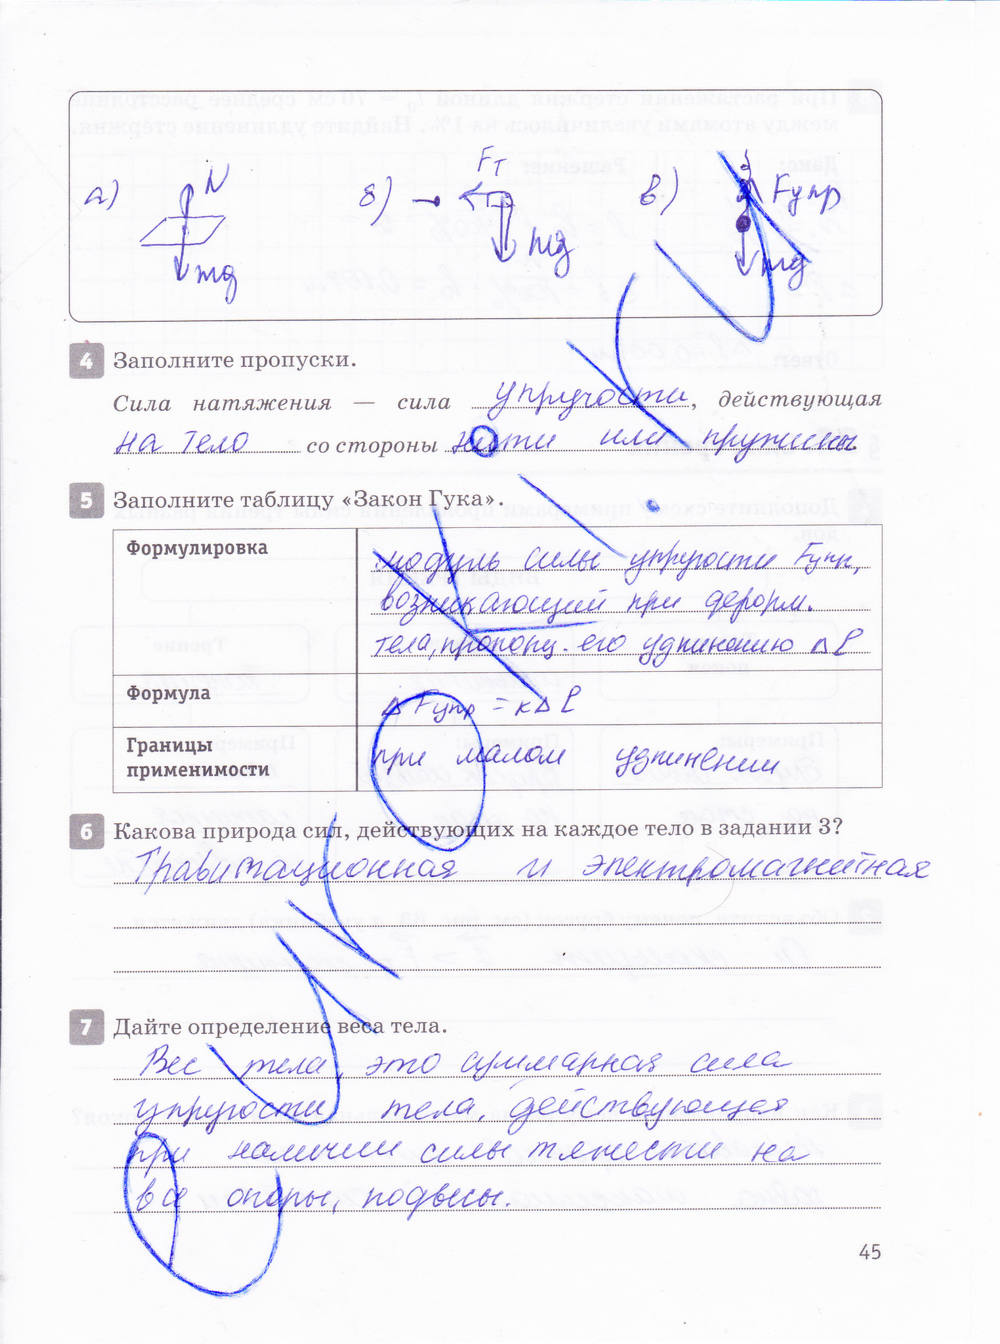 а) N mg
б) Fт mg
в) Fупр mg
4 Заполните пропуски.
Сила натяжения — сила упругости, действующая
на тело со стороны нити или пружины
5 Заполните таблицу «Закон Гука».
Формулировка
модуль силы упругости Fупр,
возникающий при деформ.
тела, пропорц. его удлинению Δl
Формула
Δ Fупр = кΔl
Границы применимости
при малом удлинении
6 Какова природа сил, действующих на каждое тело в задании 3?
Гравитационная и электромагнитная
7 Дайте определение веса тела.
Вес тела, это суммарная сила
упругости тела, действующая
при наличии силы тяжести на
все опоры, подвесы.
45